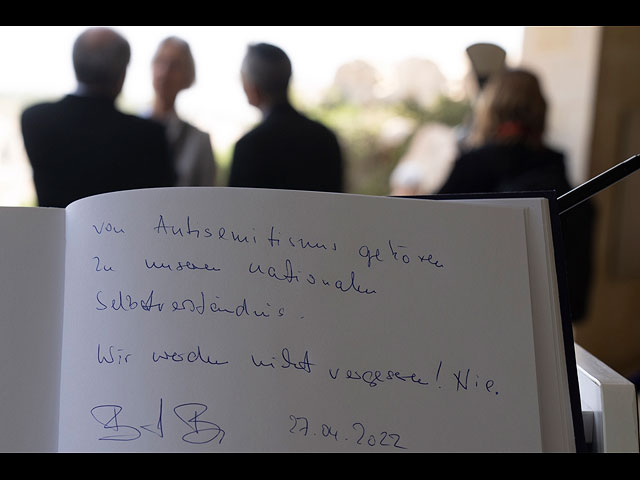 von Antisemitismus gehören
zu unserem nationalen
Selbstverständnis.
Wir werden nicht vergessen! Nie.
27.04.2022